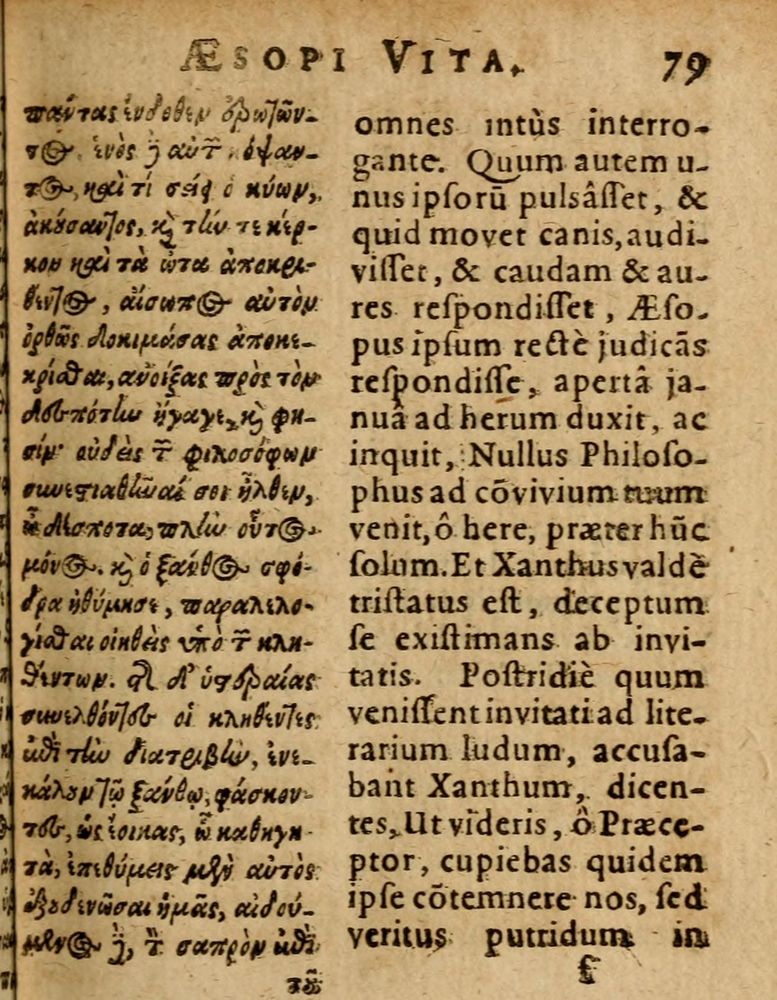 ÆSOPI VITA. 79
πάντας ἔνδοθεν ἐρωτῶν-
τος. ἑνὸς δὲ αὐτῶν κόψαν-
τος, καὶ τί σείει ὁ κύων,
ἀκούσαντος, καὶ τὴν τε κέρ-
κον καὶ τὰ ὦτα ἀποκρι-
θέντος, αἴσωπος αὐτὸν
ὀρθῶς δοκιμάσας ἀποκε-
κρίσθαι, ἀνοίξας πρὸς τὸν
δεσπότην ἤγαγε, καὶ φη-
σίν· οὐδεὶς τῶν φιλοσόφων
συνεστιαθῆναί σοι ἦλθεν,
ὦ δέσποτα, πλὴν οὗτος
μόνος. καὶ ὁ ξάνθος σφό-
δρα ἠθύμησε, παραλελο-
γίσθαι οἰηθεὶς ὑπὸ τῶν κλη-
θέντων. τῇ δ' ὑστεραίας
συνελθόντες οἱ κληθέντες
ἐπὶ τὴν διατριβὴν, ἐνε-
κάλουν τῷ ξάνθῳ, φάσκον-
τες, ὡς ἔοικας, ὦ καθηγη-
τὰ, ἐπεθύμεις μὲν αὐτὸς
ἐξουδενῶσαι ἡμᾶς, αἰδού-
μενος δὲ, τὸν σαπρὸν ἐπὶ
τῶ
omnes intùs interro-
gante. Quum autem u-
nus ipsorũ pulsâsset, &
quid movet canis, audi-
visset, & caudam & au-
res respondisset, Æso-
pus ipsum rectè judicãs
respondisse, apertâ ja-
nuâ ad herum duxit, ac
inquit, Nullus Philoso-
phus ad cõvivium tuum
venit, ô here, præter hũc
solum. Et Xanthus valdè
tristatus est, deceptum
se existimans ab invi-
tatis. Postridiè quum
venissent invitati ad lite-
rarium ludum, accusa-
bant Xanthum, dicen-
tes, Ut videris, ô Præce-
ptor, cupiebas quidem
ipse cõtemnere nos, sed
veritus putridum in
f